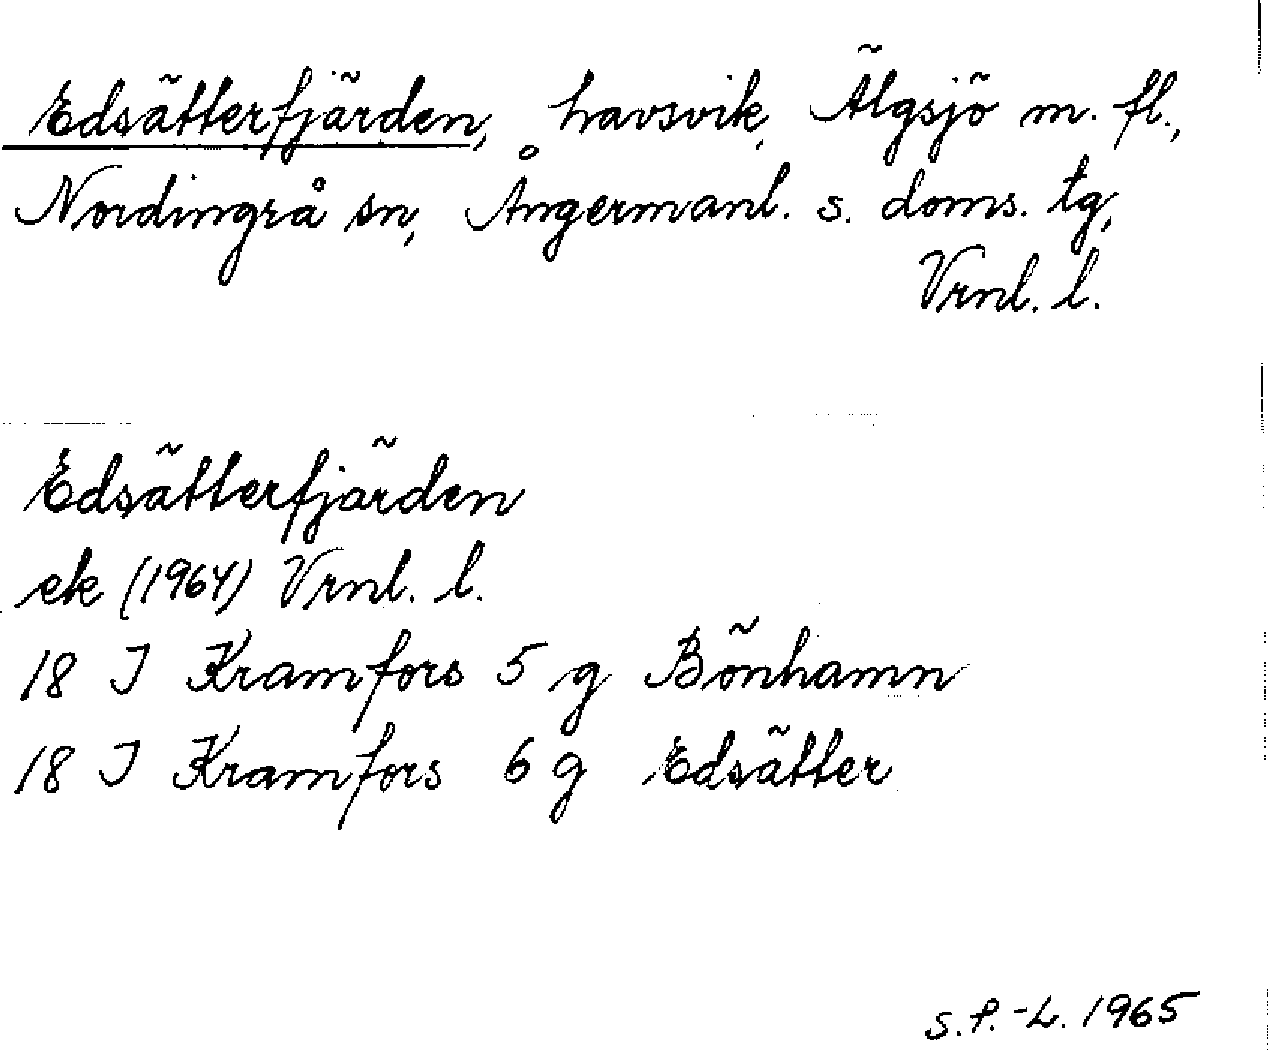 Edsätterfjärden, havsvik, Älgsjö m. fl.,
Nordingrå sn, Ångermanl. s. doms. tg,
Vrnl. l.
Edsätterfjärden
ek (1964) Vrnl. l.
18 J Kramfors 5 g Bönhamn
18 J Kramfors 6 g Edsätter
S.P.-L. 1965